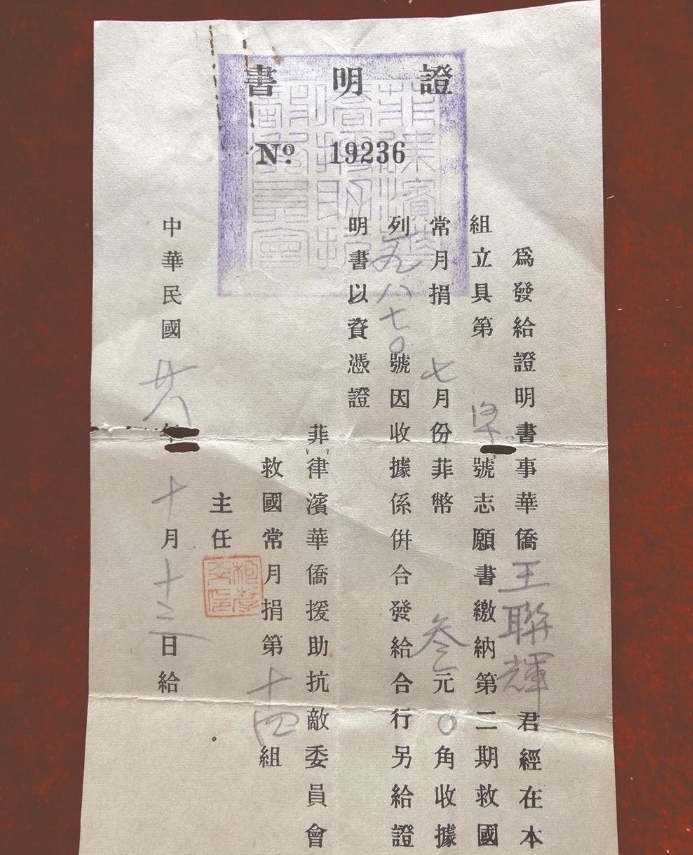 證明書
Nº 19236
爲發給證明書事華僑王聯輝君經在本
組立具第 號志願書繳納第二期救國
常月捐七月份菲幣叁元0角收據
列九八七0號因收據係併合發給合行另給證
明書以資憑證
菲律濱華僑援助抗敵委員會
救國常月捐第十四組
主任
中華民國廿八年十月十三日給